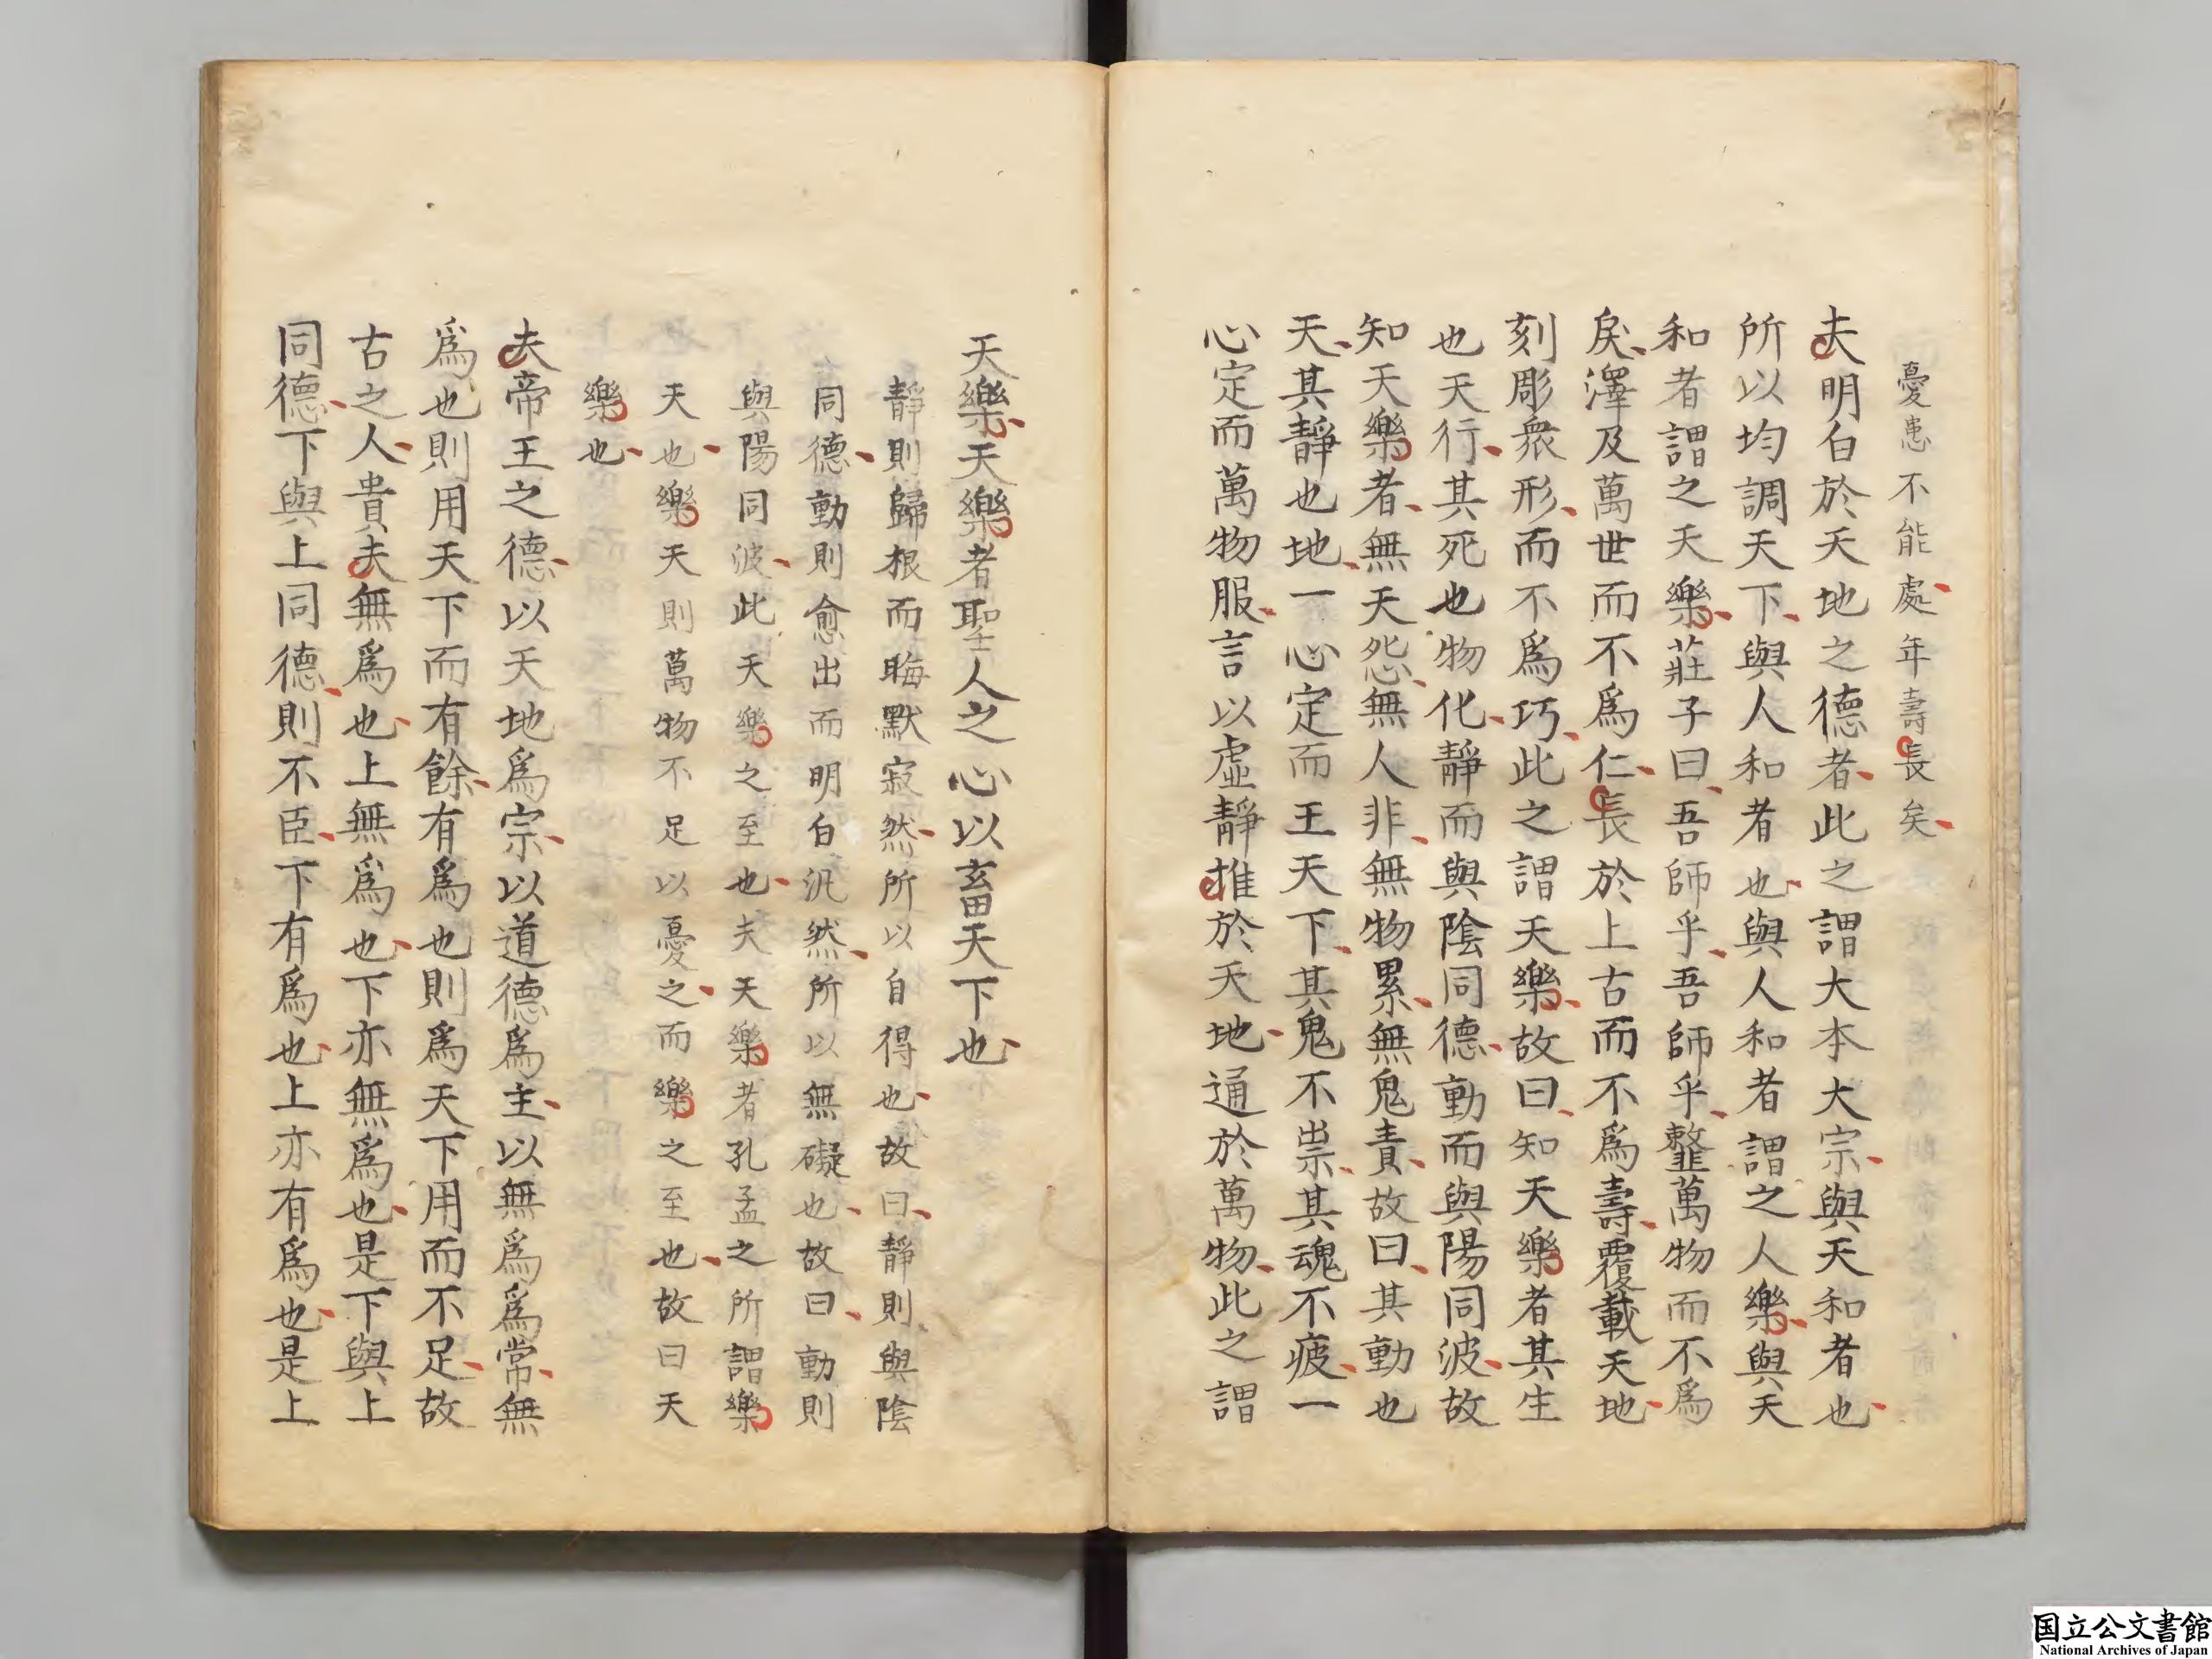 憂患不能處年壽長矣
夫明白於天地之德者此之謂大本大宗與天和者也
所以均調天下與人和者也與人和者謂之人樂與天
和者謂之天樂莊子曰吾師乎吾師乎䪠萬物而不爲
戾澤及萬世而不爲仁長於上古而不爲壽覆載天地
刻彫衆形而不爲巧此之謂天樂故曰知天樂者其生
也天行其死也物化靜而與陰同德動而與陽同波故
知天樂者無天怨無人非無物累無鬼責故曰其動也
天其靜也地一心定而王天下其鬼不祟其魂不疲一
心定而萬物服言以虛靜推於天地通於萬物此之謂
天樂天樂者聖人之心以畜天下也
靜則歸根而晦默寂然所以自得也故曰靜則與陰
同德動則愈出而明白汎然所以無礙也故曰動則
與陽同波此天樂之至也夫天樂者孔孟之所謂樂
天也樂天則萬物不足以憂之而樂之至也故曰天
樂也
夫帝王之德以天地爲宗以道德爲主以無爲爲常無
爲也則用天下而有餘有爲也則爲天下用而不足故
古之人貴夫無爲也上無爲也下亦無爲也是下與上
同德下與上同德則不臣下有爲也上亦有爲也是上
国立公文書館
National Archives of Japan